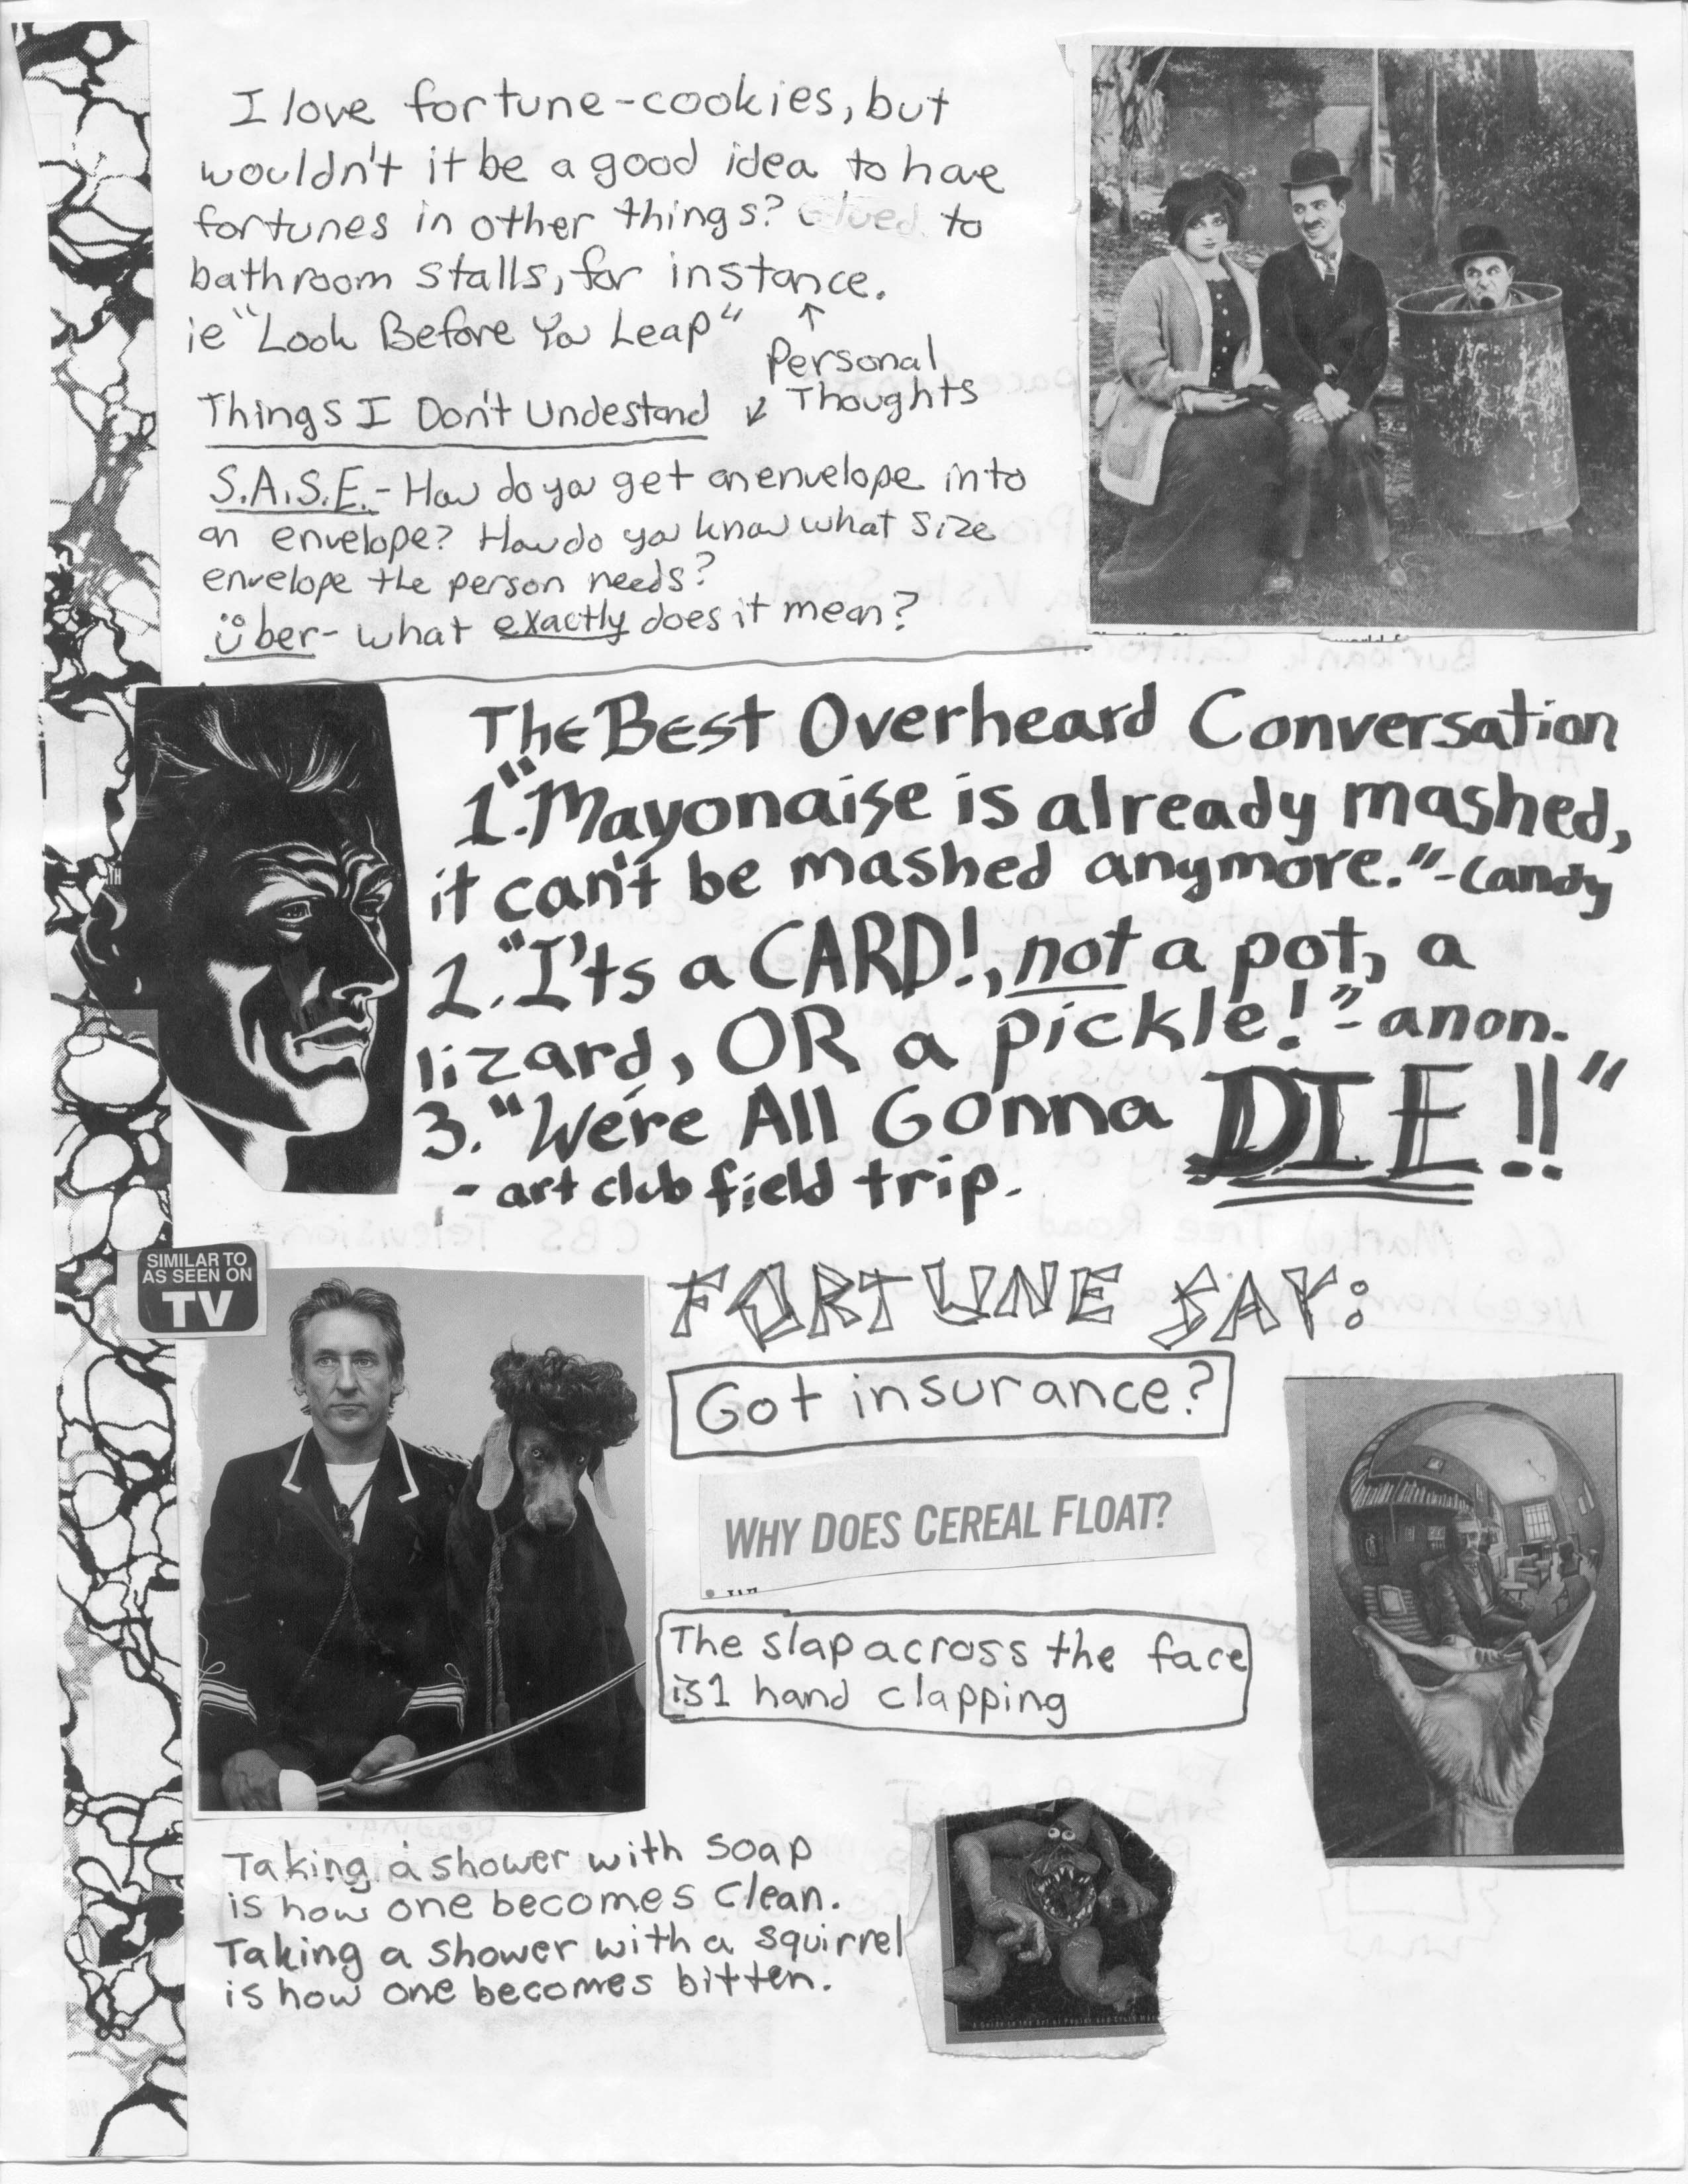 I love fortune-cookies, but
wouldn't it be a good idea to have
fortunes in other things? Glued to
bathroom stalls, for instance.
ie "Look Before You Leap"
↑
Personal
Thoughts
Things I Don't Undestand ↙
S.A.S.E. - How do you get an envelope into
an envelope? How do you know what size
envelope the person needs?
über - what exactly does it mean?
The Best Overheard Conversation
1. "Mayonaise is already mashed,
it can't be mashed anymore." - Candy
2. "I'ts a CARD!, not a pot, a
lizard, OR a pickle!" - anon.
3. "We're All Gonna DIE!!"
- art club field trip.
SIMILAR TO
AS SEEN ON
TV
FORTUNE SAY:
Got insurance?
WHY DOES CEREAL FLOAT?
The slap across the face
is 1 hand clapping
Taking a shower with soap
is how one becomes clean.
Taking a shower with a squirrel
is how one becomes bitten.
A Guide to the Art of Papier and Cloth